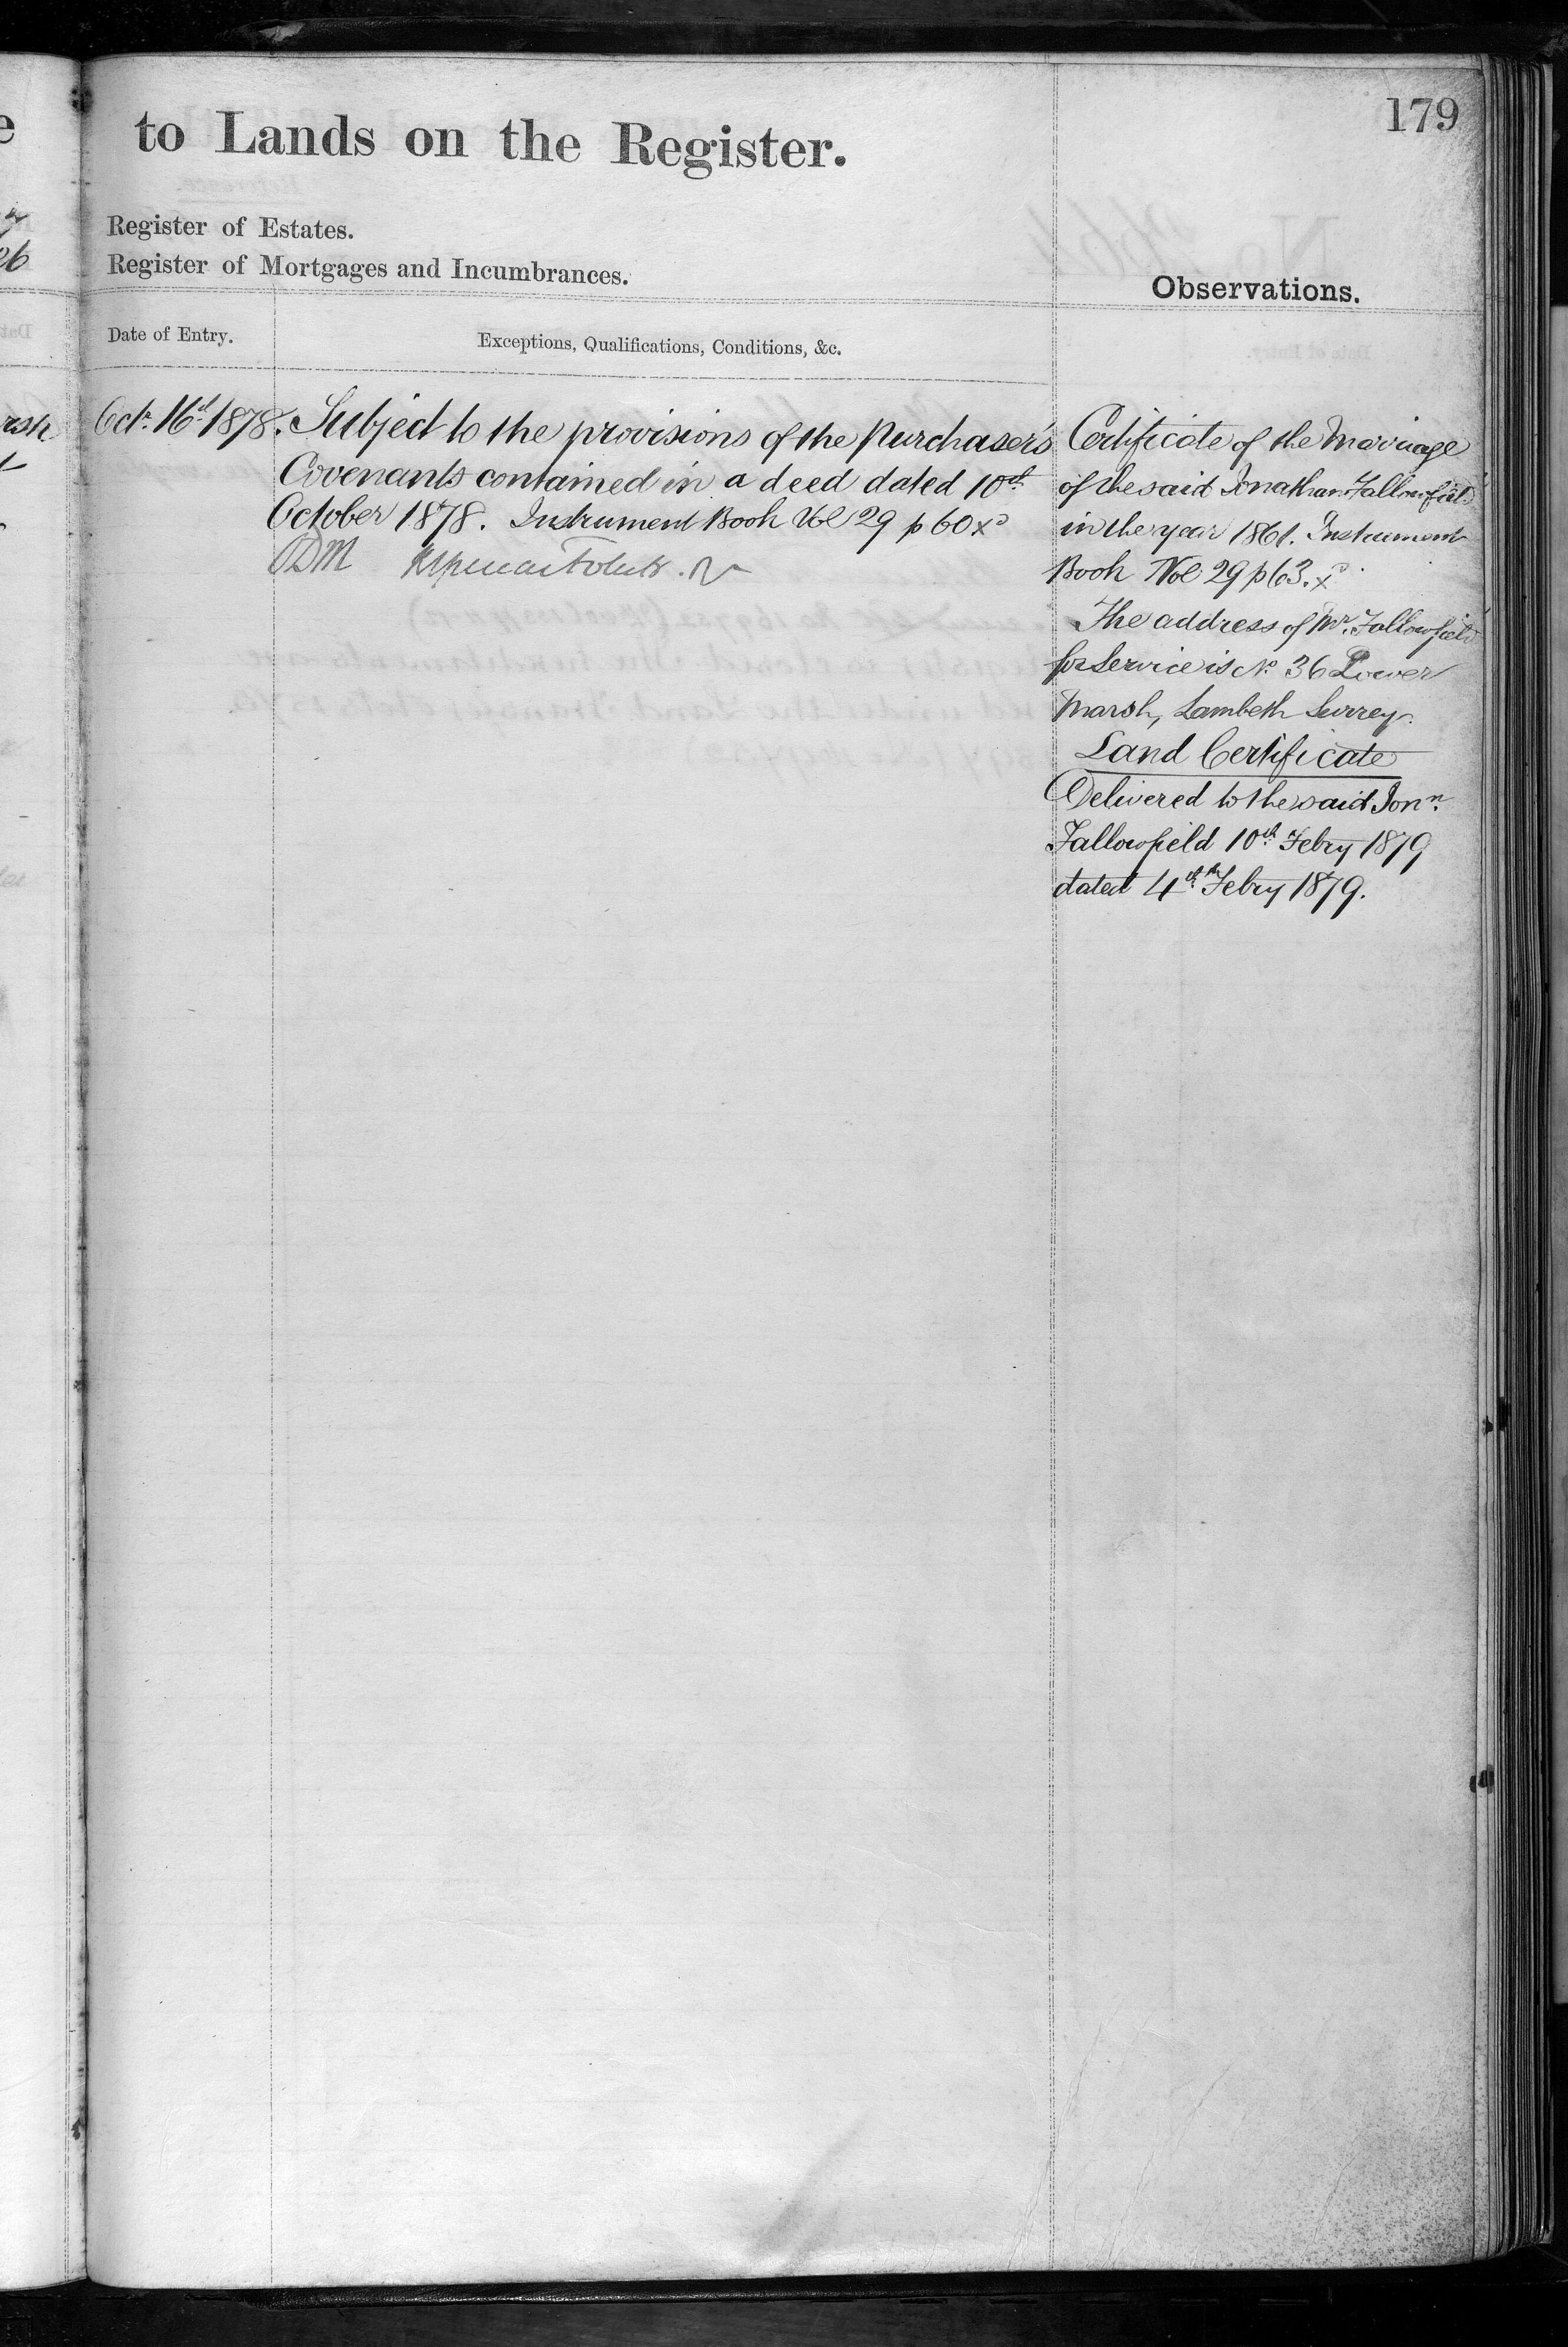 179
to Lands on the Register.
Register of Estates.
Register of Mortgages and Incumbrances.
Observations.
Date of Entry.
Exceptions, Qualifications, Conditions, &c.
Octr. 16th 1878.
Subject to the provisions of the Purchaser's
Covenants contained in a deed dated 10th
October 1878. Instrument Book Vol 29 p 60 xd
DM
Certificate of the Marriage
of the said Jonathan Fallowfield
in the year 1861. Instrument
Book Vol 29 p 63. xd
The address of Mr. Fallowfield
for Service is No. 36 Lower
Marsh, Lambeth Surrey.
Land Certificate
Delivered to the said Jonn.
Fallowfield 10th Febry 1879
dated 4th Febry 1879.